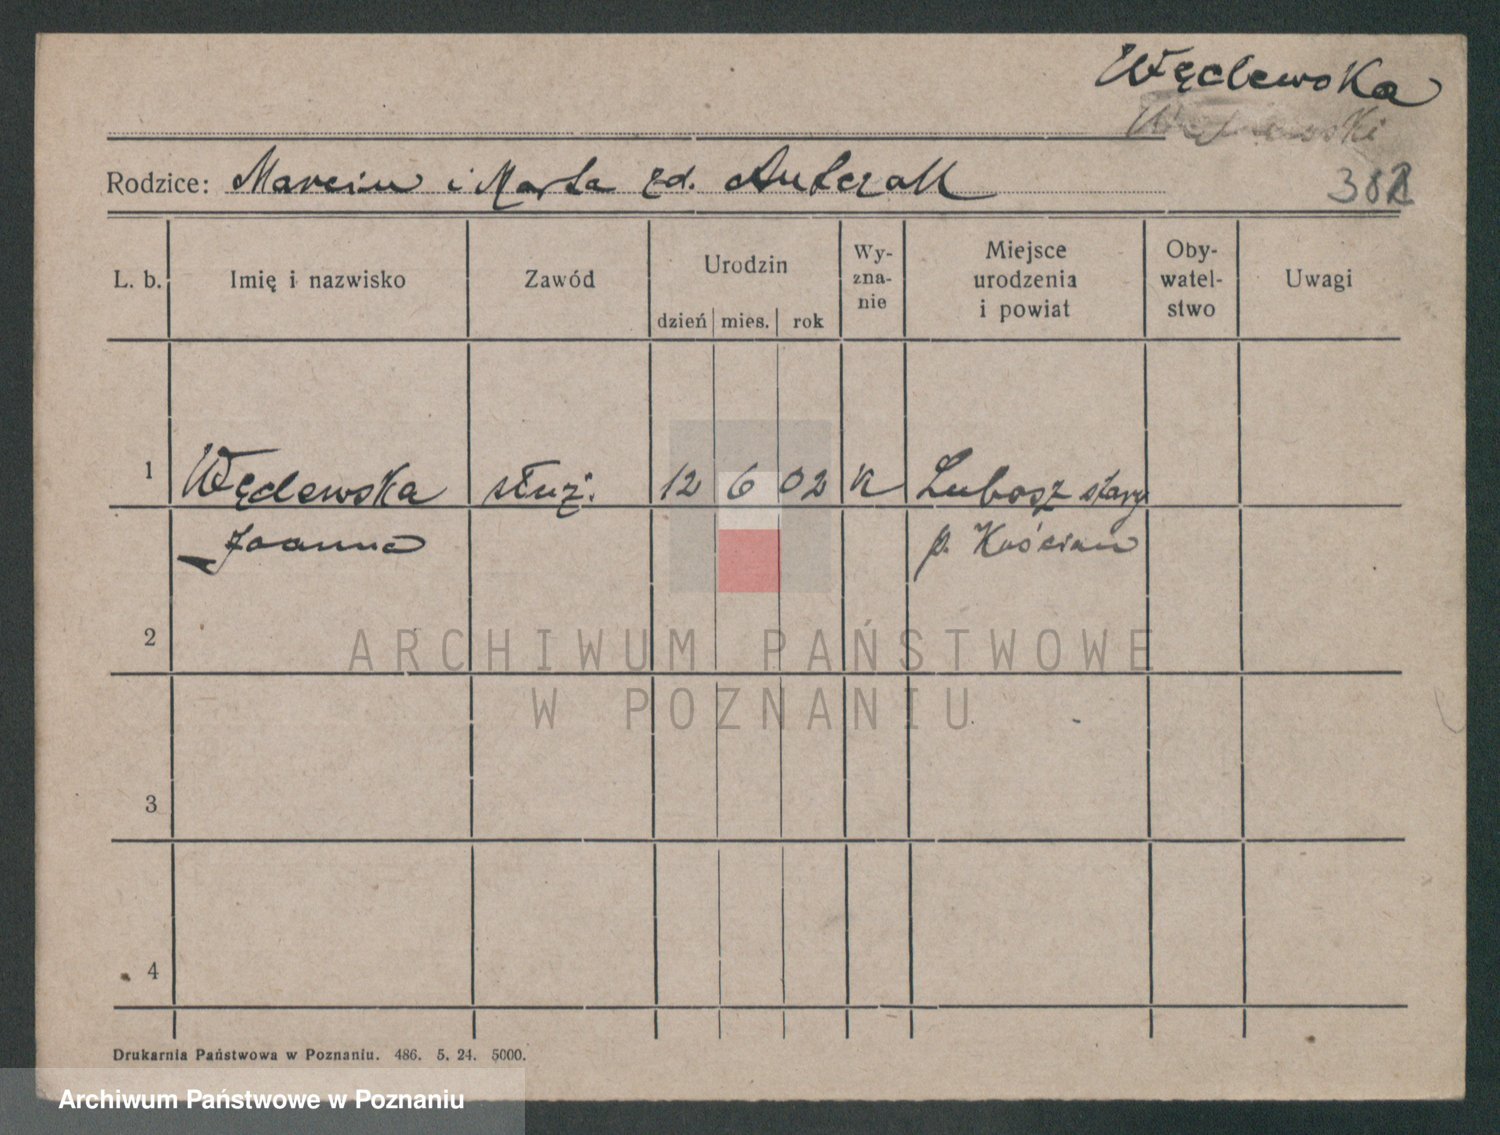 Węclewska
Rodzice: Marcin i Marta zd. Antczak
L. b. Imię i nazwisko Zawód Urodzin Wy-zna-nie Miejsce urodzenia i powiat Oby-watel-stwo Uwagi
dzień mies. rok
1 Węclewska służ. 12 6 02 k Lubosz stary
Joanna p. Kościan
2
ARCHIWUM PAŃSTWOWE
W POZNANIU
3
4
Drukarnia Państwowa w Poznaniu. 486. 5. 24. 5000.
Archiwum Państwowe w Poznaniu